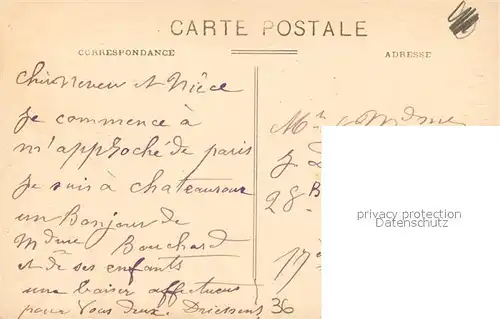 CARTE POSTALE
CORRESPONDANCE
ADRESSE
Chers Neveu et Nièce
je commence à
m'approché de paris
je suis à chateauroux
un Bonjour de
Mdme Bouchard
et de ses enfants
une baiser affectueux
pour vous deux. Driessens
Mr & Mdme
J.
28 B
17è
36
privacy protection
Datenschutz